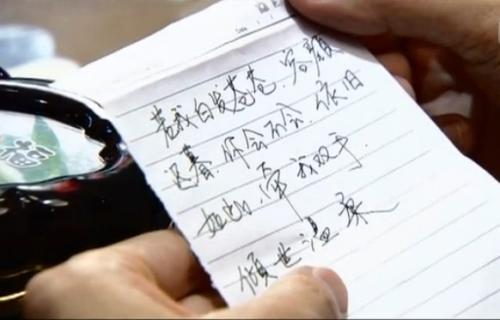 若我白发苍苍,容颜
迟暮,你会不会,依旧
如此,牵我双手,
倾世温柔